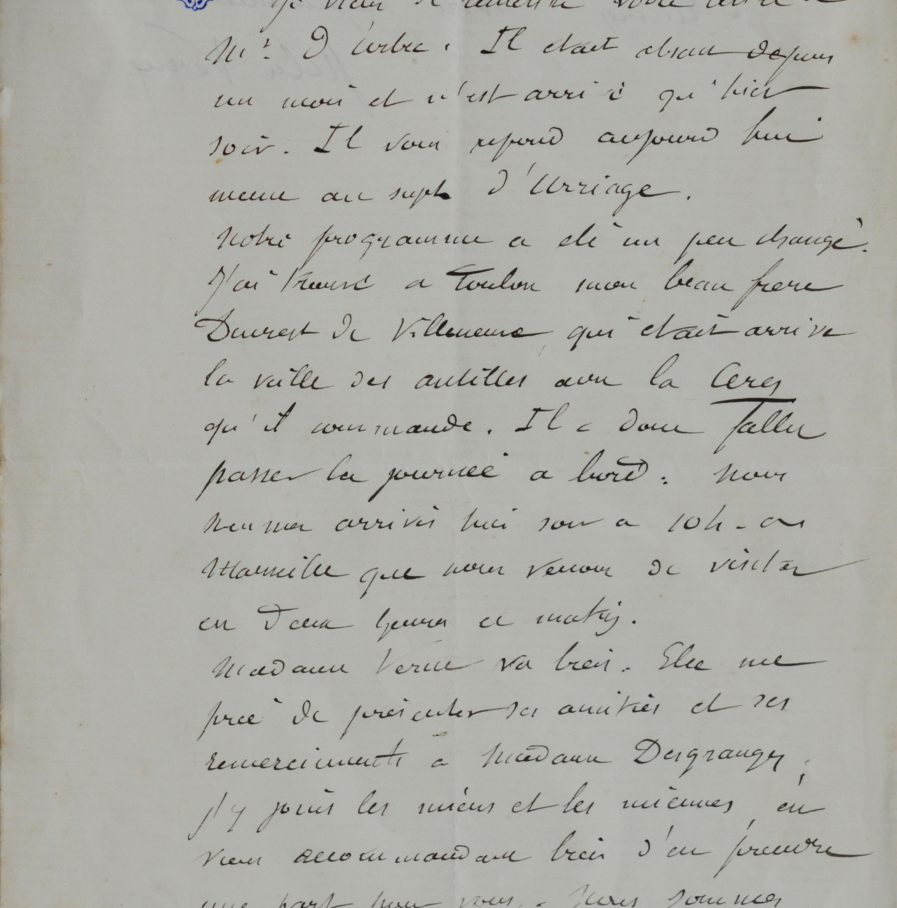 Je viens de remettre votre lettre à
Mr. D'. Il était absent depuis
un mois et n'est arrivé qu'hier
soir. Il vous repond aujourd'hui
meme au sujet d'Urriage.
Notre programme a été un peu changé.
J'ai trouvé a Toulon mon beau frere
Ducrest de Villeneuve, qui etait arrivé
la veille des antilles avec la Ceres
qu'il commande. Il a donc fallu
passer la journée a bord. Nous
sommes arrivés hier soir a 10h. a
Marseille que nous venons de visiter
en deux heures ce matin.
Madame Verne va bien. Elle me
prie de presenter ses amitiés et ses
remerciments a Madame Desgranges,
j'y joins les miens et les miennes, en
vous recommandant bien d'en prendre
une part pour vous. Nous sommes